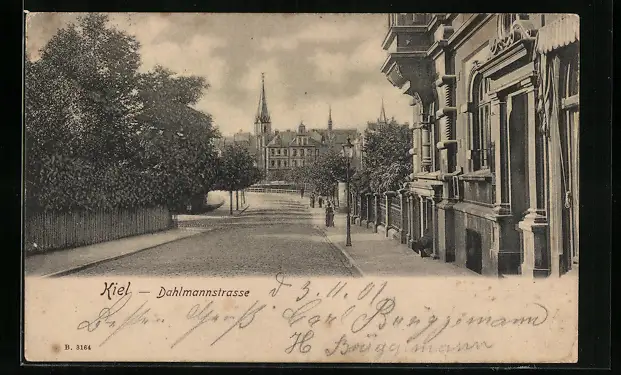 Kiel — Dahlmannstrasse
d 3.11.01
Besten Gruß Carl Brüggemann
H Brüggemann
B. 3164